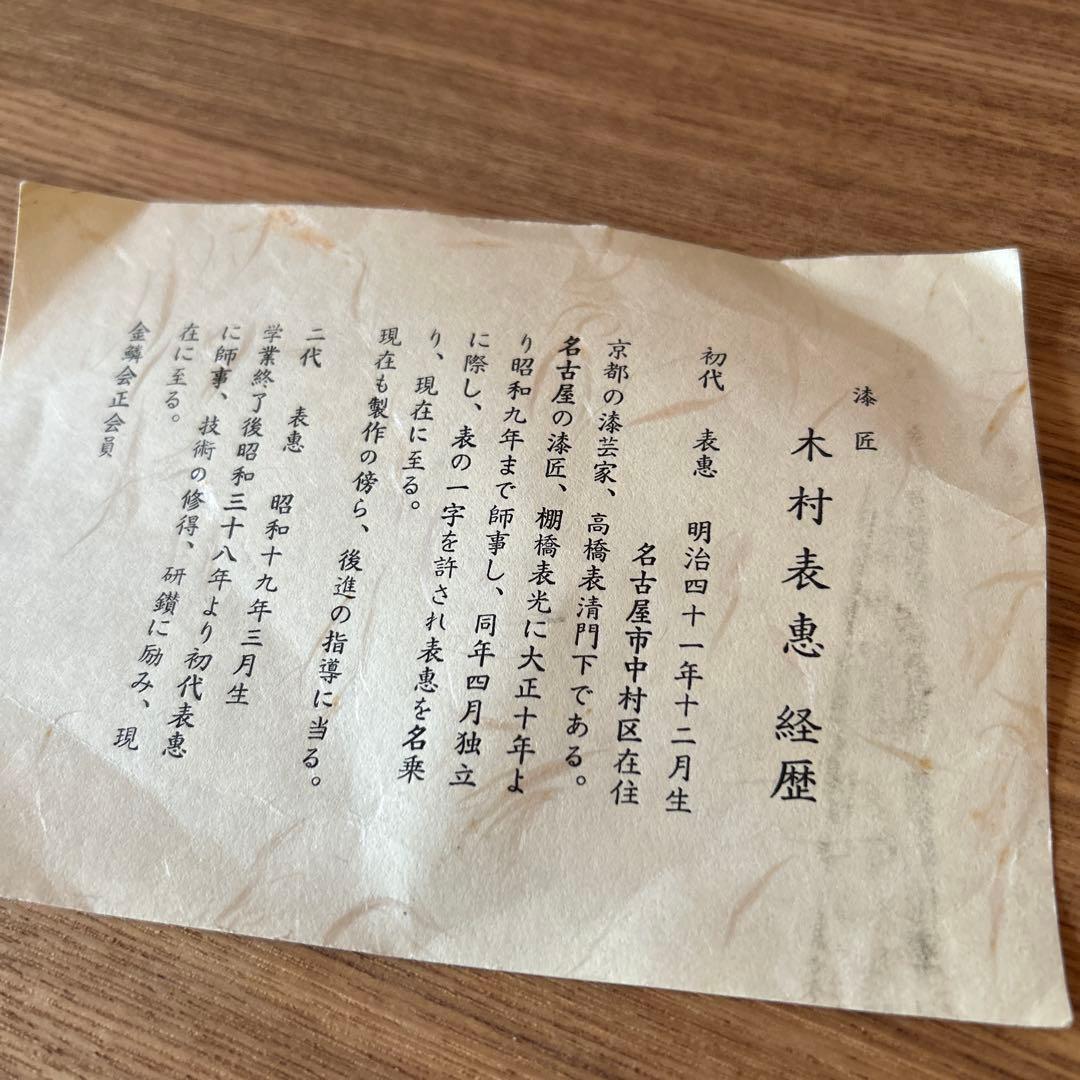 漆匠
木村表惠 経歴
初代 表惠 明治四十一年十二月生
名古屋市中村区在住
京都の漆芸家、高橋表清門下である。
名古屋の漆匠、棚橋表光に大正十年よ
り昭和九年まで師事し、同年四月独立
に際し、表の一字を許され表惠を名乗
り、現在に至る。
現在も製作の傍ら、後進の指導に当る。
二代 表惠 昭和十九年三月生
学業終了後昭和三十八年より初代表惠
に師事、技術の修得、研鑚に励み、現
在に至る。
金鱗会正会員